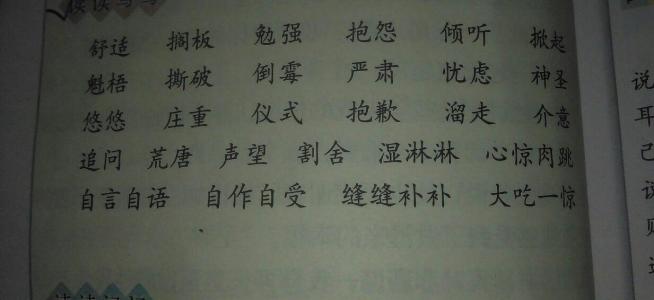 读读写写
舒适 搁板 勉强 抱怨 倾听 掀起
魁梧 撕破 倒霉 严肃 忧虑 神圣
悠悠 庄重 仪式 抱歉 溜走 介意
追问 荒唐 声望 割舍 湿淋淋 心惊肉跳
自言自语 自作自受 缝缝补补 大吃一惊
说
耳
己
说